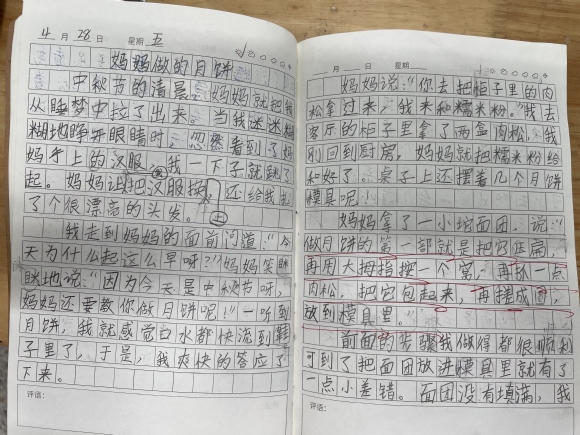 4月28日 星期五
妈妈做的月饼
中秋节的清晨，妈妈就把我
从睡梦中拉了出来。当我迷迷糊
糊地睁开眼睛时，忽然看到了妈
妈手上的汉服，我一下子就跳了
起。妈妈让把汉服 还给我扎
了个很漂亮的头发。
上
我走到妈妈的面前问道：“今
天为什么起这么早呀？”妈妈笑眯
眯地说：“因为今天是中秋节呀，
妈妈还要教你做月饼呢！”一听到
月饼，我就感觉口水都快流到鞋
子里了，于是，我爽快的答应了
下来。
评语：
月 日 星期
妈妈说：“你去把柜子里的肉
松拿过来，我来和糯米粉。”我去
客厅的柜子里拿了两盒肉松，我
刚回到厨房，妈妈就把糯米粉给
和好了。桌子上还摆着几个月饼
模具呢！
妈妈拿了一小坨面团，说：“
做月饼的第一部就是把它压扁，
再用大拇指按一个窝，再抓一点
肉松，把它包起来，再搓成圆，
放到模具里。”
前面的步骤我做得都很顺利
可到了把面团放进模具里就有了
一点小差错。面团没有填满，我
评语：